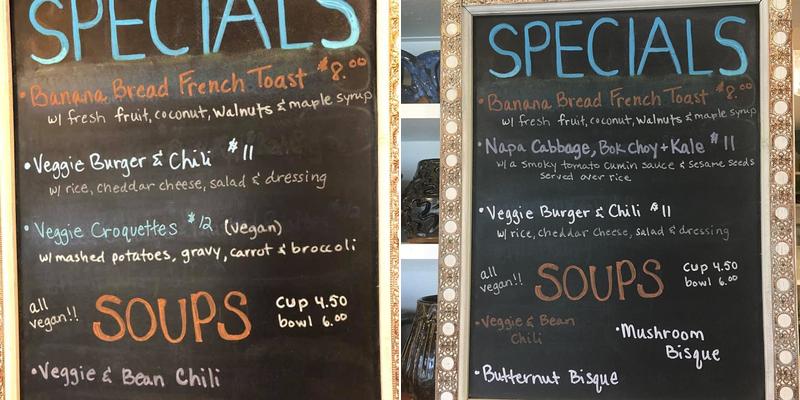 SPECIALS
• Banana Bread French Toast $8.00
w/ fresh fruit, coconut, walnuts & maple syrup
• Veggie Burger & Chili $11
w/ rice, cheddar cheese, salad & dressing
• Veggie Croquettes $12 (vegan)
w/ mashed potatoes, gravy, carrot & broccoli
all vegan!!
SOUPS
cup 4.50
bowl 6.00
• Veggie & Bean Chili
SPECIALS
• Banana Bread French Toast $8.00
w/ fresh fruit, coconut, walnuts & maple syrup
• Napa Cabbage, Bok choy + Kale $11
w/ a smoky tomato cumin sauce & sesame seeds
served over rice
• Veggie Burger & Chili $11
w/ rice, cheddar cheese, salad & dressing
all vegan!!
SOUPS
cup 4.50
bowl 6.00
• Veggie & Bean
Chili
• Mushroom
Bisque
• Butternut Bisque